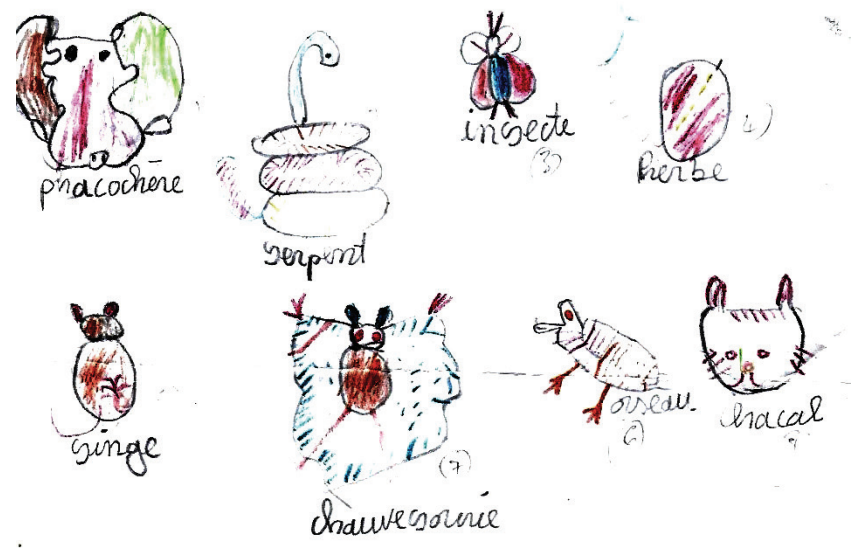 phacochère
serpent
insecte
(3)
herbe
4)
singe
chauvesourie
(7)
oiseau
(6)
chacal